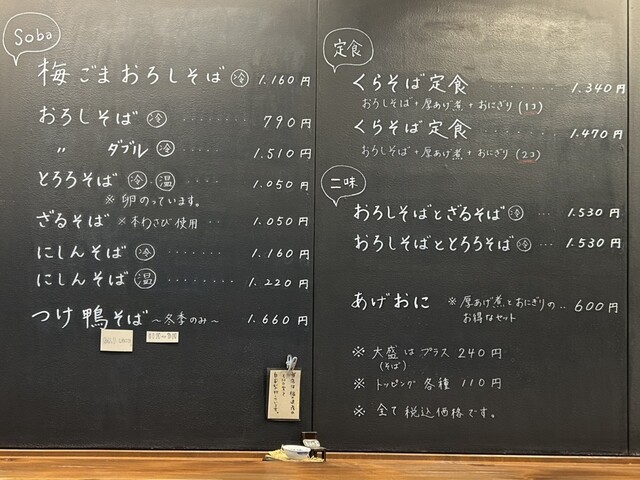 Soba
梅ごまおろしそば 冷 1.160円
おろしそば 冷 ········ 790円
〃 ダブル 冷 ····· 1.510円
とろろそば 冷・温 ······· 1.050円
※卵のっています。
ざるそば ※本わさび使用 ·· 1.050円
にしんそば 冷 ········ 1.160円
にしんそば 温 ········ 1.220円
つけ鴨そば 〜冬季のみ〜 1.660円
定食
くらそば定食 ········ 1.340円
おろしそば+厚あげ煮+おにぎり(1コ)
くらそば定食 ······ 1.470円
おろしそば+厚あげ煮+おにぎり(2コ)
二味
おろしそばとざるそば 冷 ··· 1.530円
おろしそばととろろそば 冷 ··· 1.530円
あげおに ※厚あげ煮とおにぎりの ·· 600円
お得なセット
※ 大盛はプラス 240円
(そば)
※ トッピング各種 110円
※ 全て税込価格です。